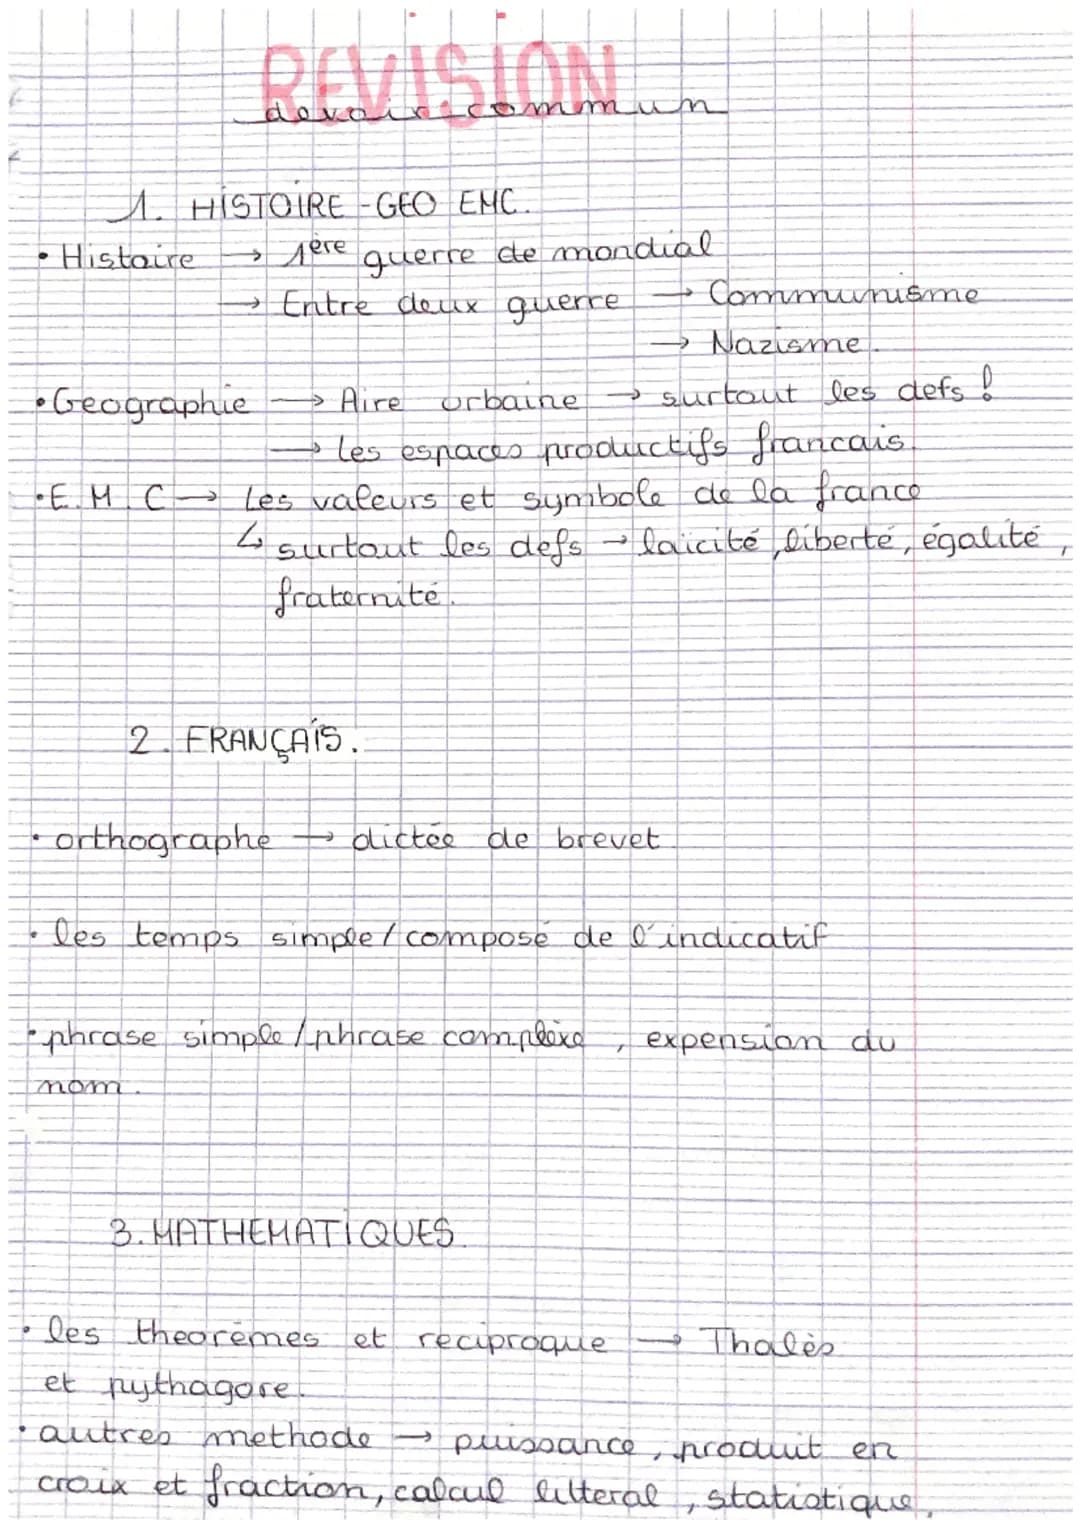 REVISION
devoir commun
1. HISTOIRE-GEO EMC.
• Histoire → 1ère guerre de mondial
→ Entre deux guerre → Communisme
→ Nazisme.
• Geographie → Aire urbaine → surtout les defs !
→ Les espaces productifs francais.
• E.M.C → Les valeurs et symbole de la france
↳ surtout les defs → laicité, liberté, égalité,
fraternité.
2. FRANÇAIS.
• orthographe → dictée de brevet.
• les temps simple/composé de l'indicatif
• phrase simple/phrase complexe, expension du
nom.
3. MATHEMATIQUES.
• les theorèmes et reciproque → Thalès
et pythagore.
• autres methode → puissance, produit en
croix et fraction, calcul litteral, statistique.